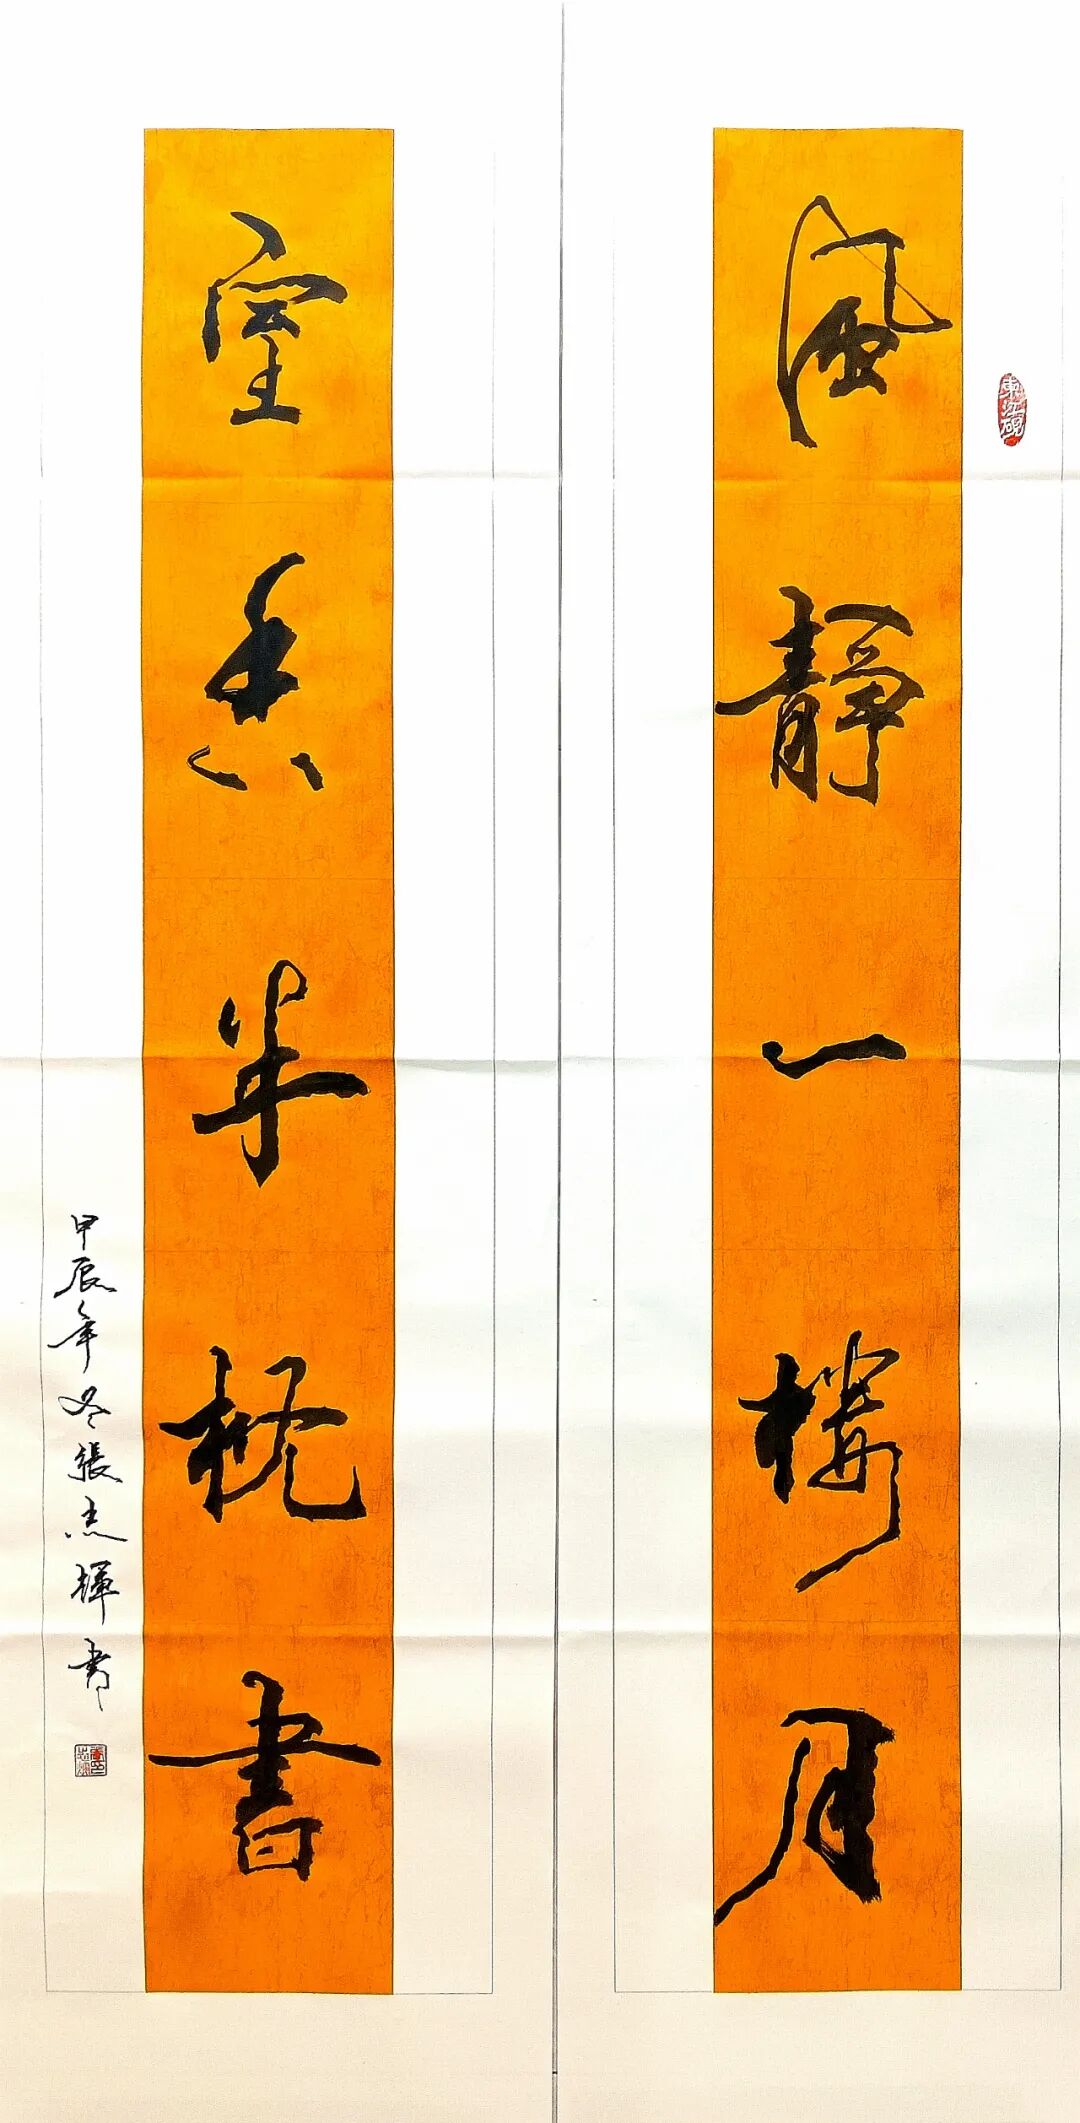 東江硯
風靜一樓月
室香半枕書
甲辰年冬張志輝書